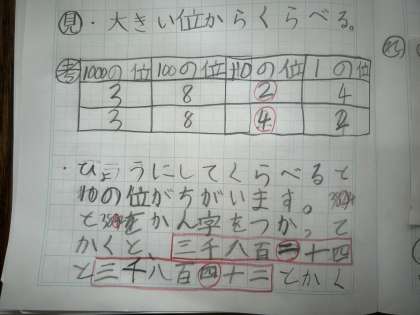 見・大きい位からくらべる。
考 1000の位 100の位 10の位 1の位
3 8 2 4
3 8 4 2
・ひょうにしてくらべると
10の位がちがいます。
とをかん字をつかって
かくと、三千八百二十四
と三千八百四十二とかく